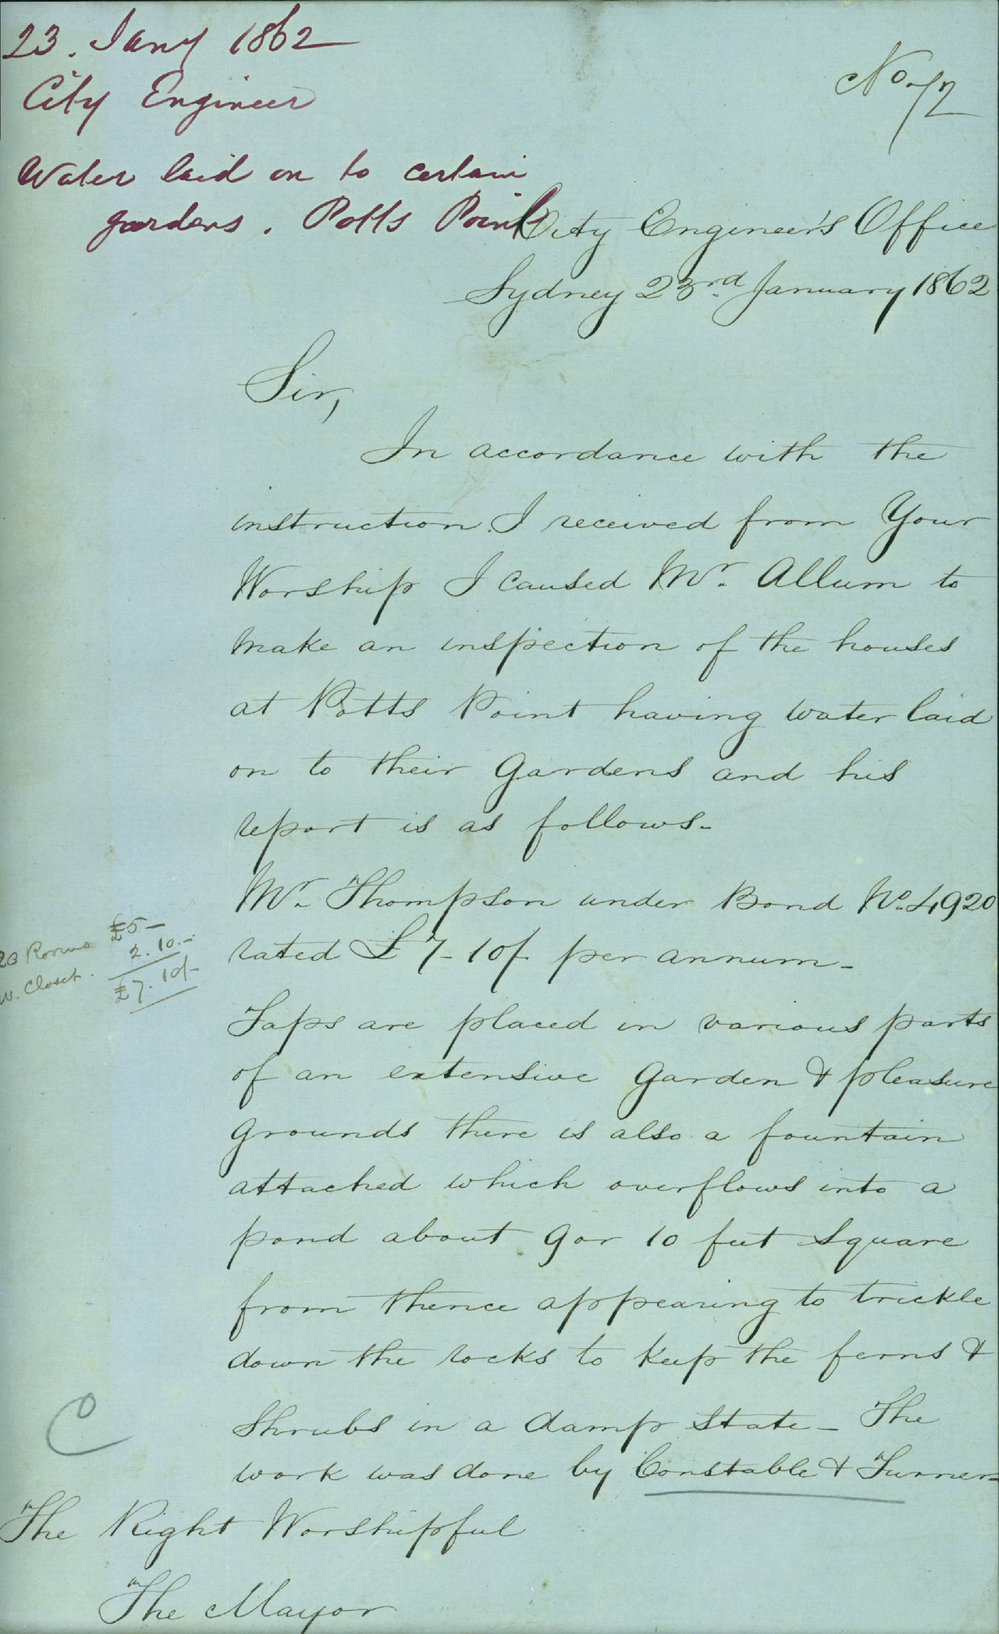 23. Jany 1862
City Engineer
Water laid on to certain
gardens. Potts Point
No 72
City Engineer's Office
Sydney 23rd January 1862
Sir,
In accordance with the
instruction I received from Your
Worship I caused Mr. Allum to
make an inspection of the houses
at Potts Point having water laid
on to their Gardens and his
report is as follows.
Mr. Thompson under Bond No. 4920
rated £7-10/- per annum-
20 Rooms £5-
W. Closet. 2.10.-
£7.10/-
Taps are placed in various parts
of an extensive Garden & pleasure
Grounds there is also a fountain
attached which overflows into a
pond about 9 or 10 feet square
from thence appearing to trickle
down the rocks to keep the ferns &
Shrubs in a damp state- The
work was done by Constable & Turner-
The Right Worshipful
The Mayor